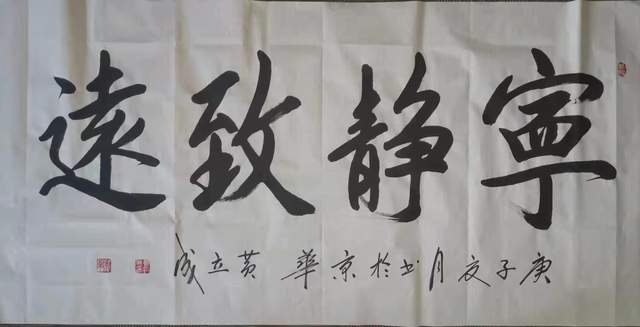 寧静致遠
庚子夏月书於京華 黄立成